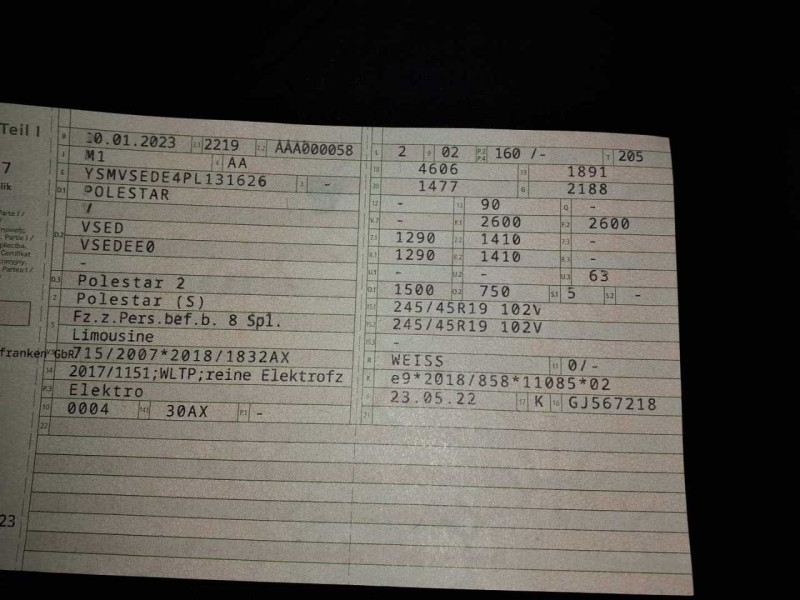 Teil I
B 10.01.2023 2.1 2219 2.2 AAA000058
J M1 4 AA
E YSMVSEDE4PL131626 3 -
D.1 POLESTAR
/
D.2 VSED
VSEDEE0
-
D.3 Polestar 2
2 Polestar (S)
5 Fz.z.Pers.bef.b. 8 Spl.
Limousine
715/2007*2018/1832AX
14 2017/1151;WLTP;reine Elektrofz
P.3 Elektro
10 0004 14.1 30AX P.1 -
22
L 2 9 02 P.2 P.4 160 /- T 205
18 4606 19 1891
20 1477 G 2188
12 - 13 90 Q -
V.7 - F.1 2600 F.2 2600
7.1 1290 7.2 1410 7.3 -
8.1 1290 8.2 1410 8.3 -
U.1 - U.2 - U.3 63
O.1 1500 O.2 750 S.1 5 S.2 -
15.1 245/45R19 102V
15.2 245/45R19 102V
15.3 -
R WEISS 11 0/-
K e9*2018/858*11085*02
6 23.05.22 17 K 16 GJ567218
21
7
lik
Certifikat
franken GbR
23